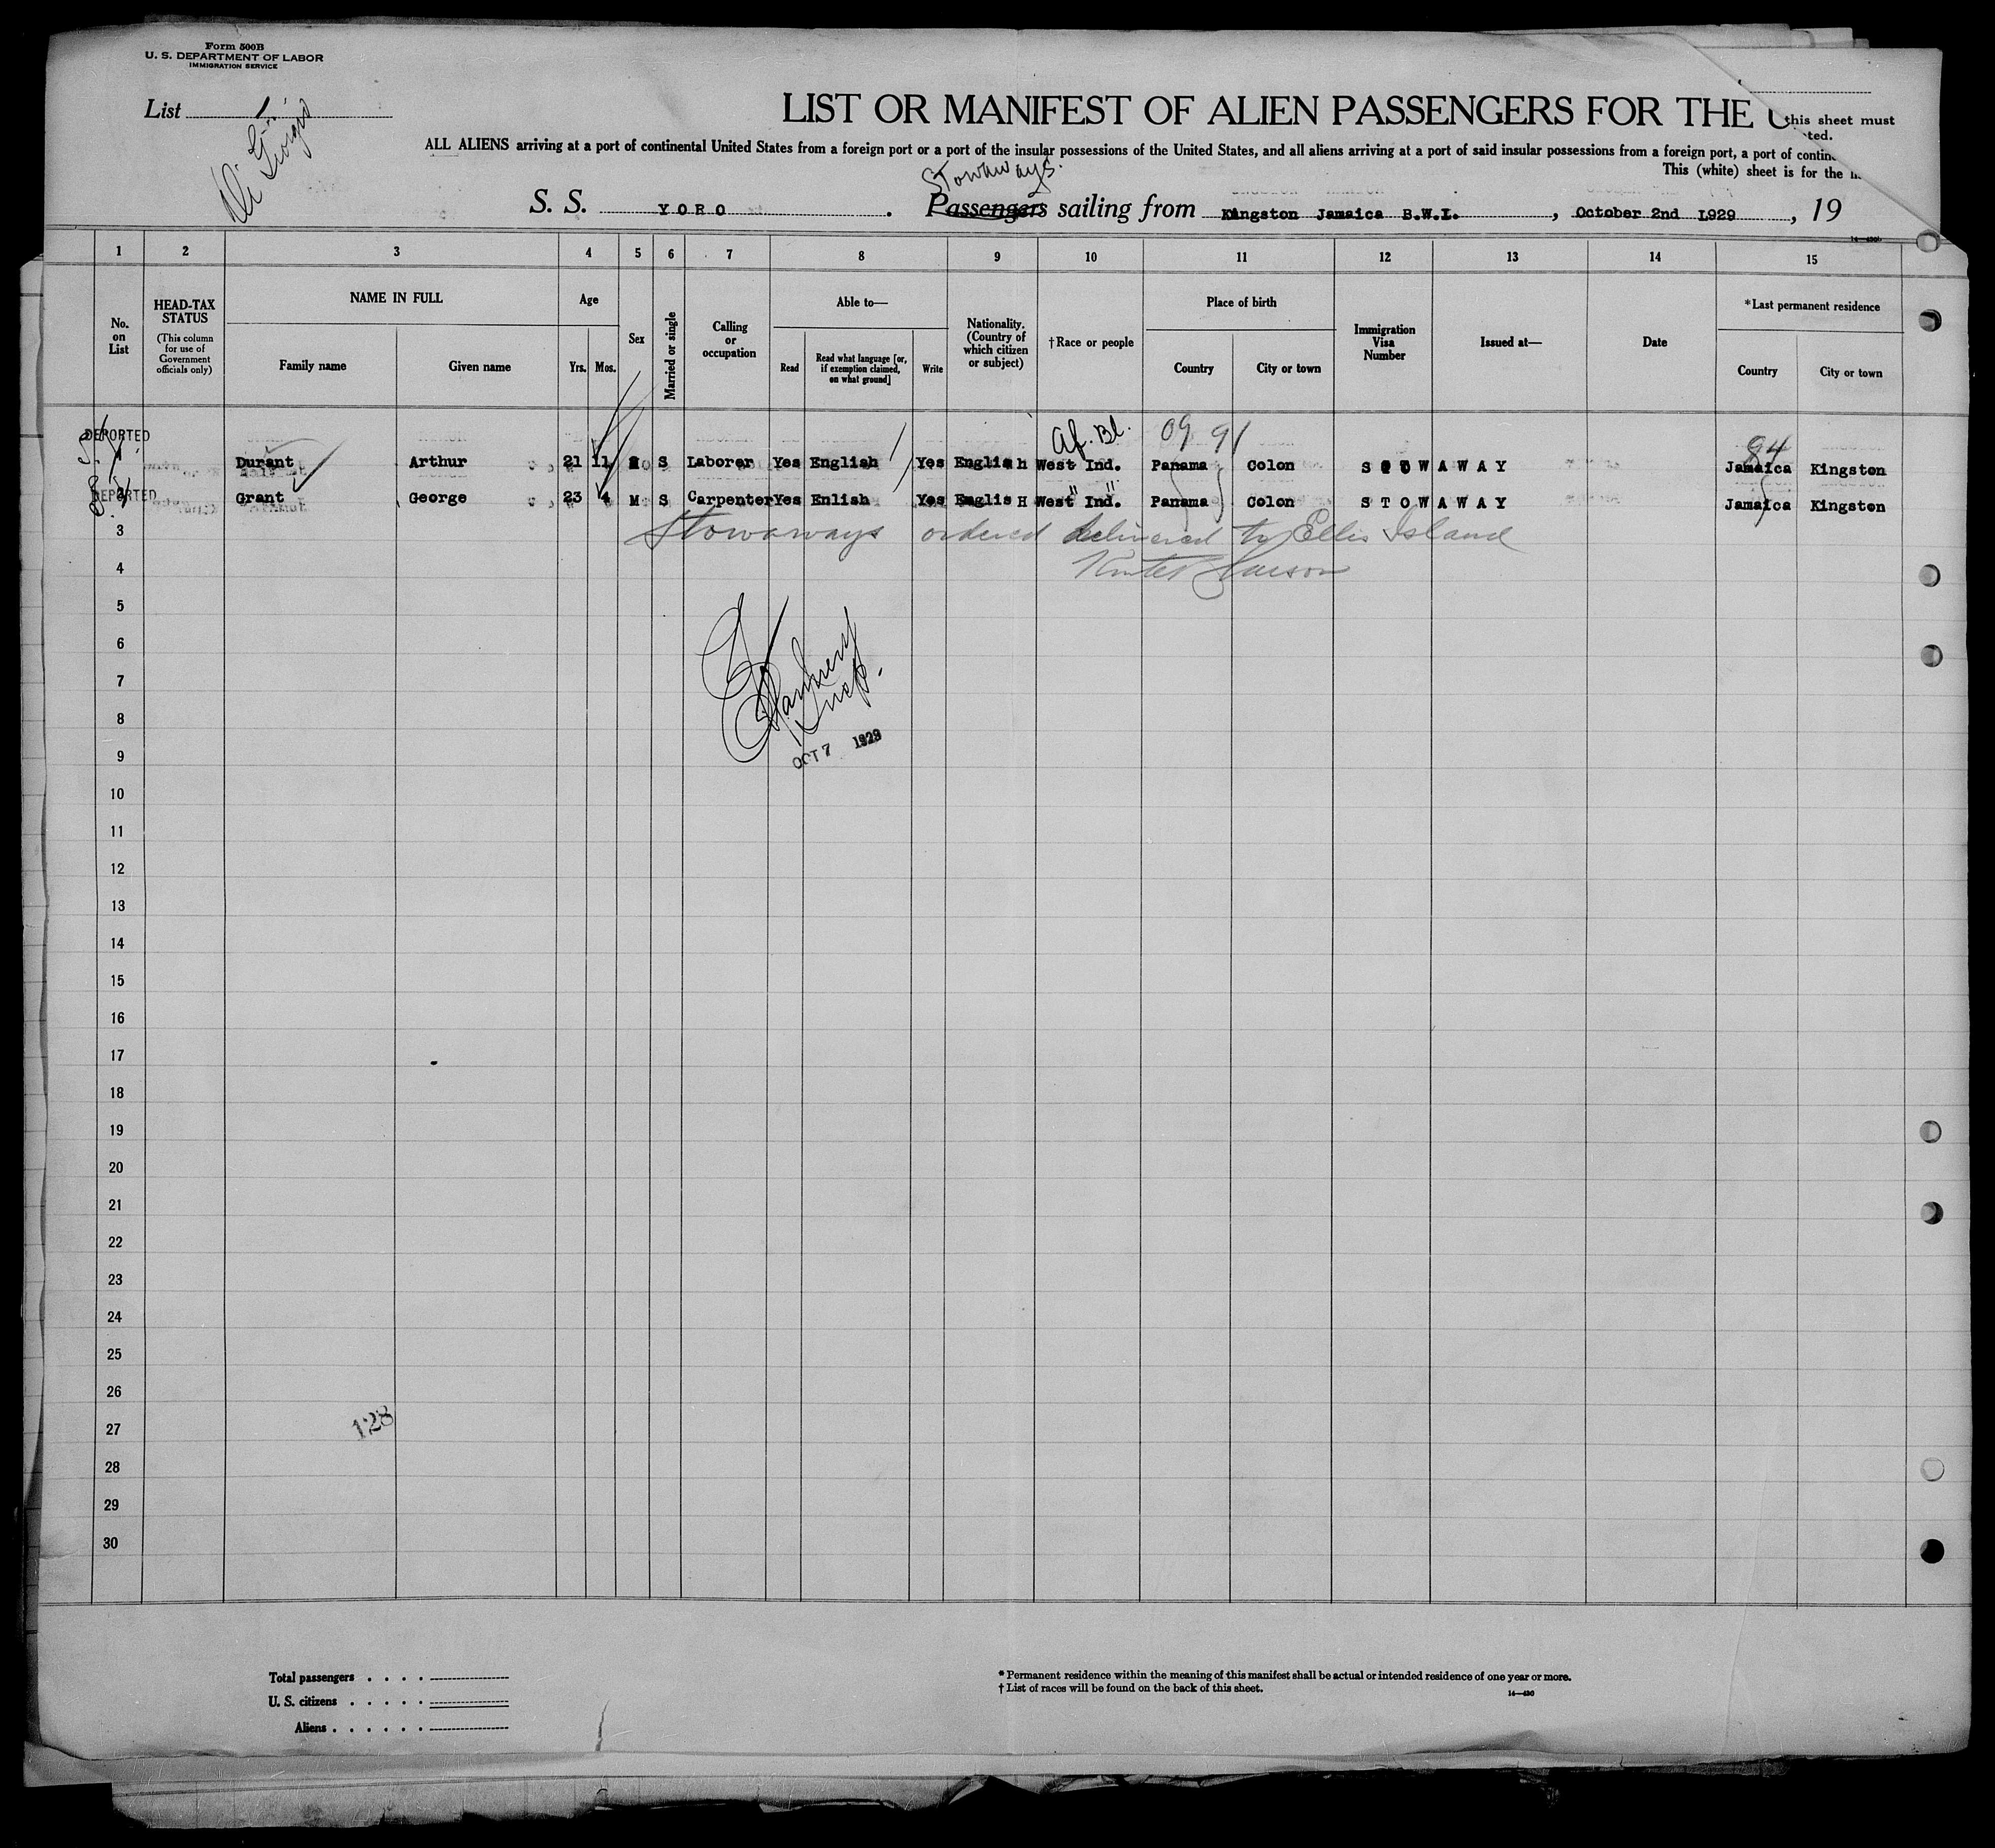 Form 500B
U. S. DEPARTMENT OF LABOR
IMMIGRATION SERVICE
List 1
Di Giorgio
LIST OR MANIFEST OF ALIEN PASSENGERS FOR THE U
this sheet must
ted.
ALL ALIENS arriving at a port of continental United States from a foreign port or a port of the insular possessions of the United States, and all aliens arriving at a port of said insular possessions from a foreign port, a port of contin
This (white) sheet is for the
Stowaways.
S. S. YORO . Passengers sailing from Kingston Jamaica B.W.I. , October 2nd 1929 , 19
1 2 3 4 5 6 7 8 9 10 11 12 13 14 15
No. on List
HEAD-TAX STATUS
(This column for use of Government officials only)
NAME IN FULL
Family name Given name
Age
Yrs. Mos.
Sex
Married or single
Calling or occupation
Able to—
Read
Read what language [or, if exemption claimed, on what ground]
Write
Nationality. (Country of which citizen or subject)
†Race or people
Place of birth
Country City or town
Immigration Visa Number
Issued at—
Date
*Last permanent residence
Country City or town
DEPORTED Af. Bl. 09 91 84
Durant Arthur 21 11 S Laborer Yes English Yes English West Ind. Panama Colon STOWAWAY Jamaica Kingston
DEPORTED
Grant George 23 4 M S Carpenter Yes Enlish Yes EnglisH West Ind. Panama Colon STOWAWAY Jamaica Kingston
" "
3 Stowaways ordered delivered to Ellis Island
4
5
6
7
8
Insp.
OCT 7 1929
9
10
11
12
13
14
15
16
17
18
19
20
21
22
23
24
25
26
128
27
28
29
30
Total passengers . . . .
U. S. citizens . . . . .
Aliens . . . . . .
* Permanent residence within the meaning of this manifest shall be actual or intended residence of one year or more.
† List of races will be found on the back of this sheet.
14—430